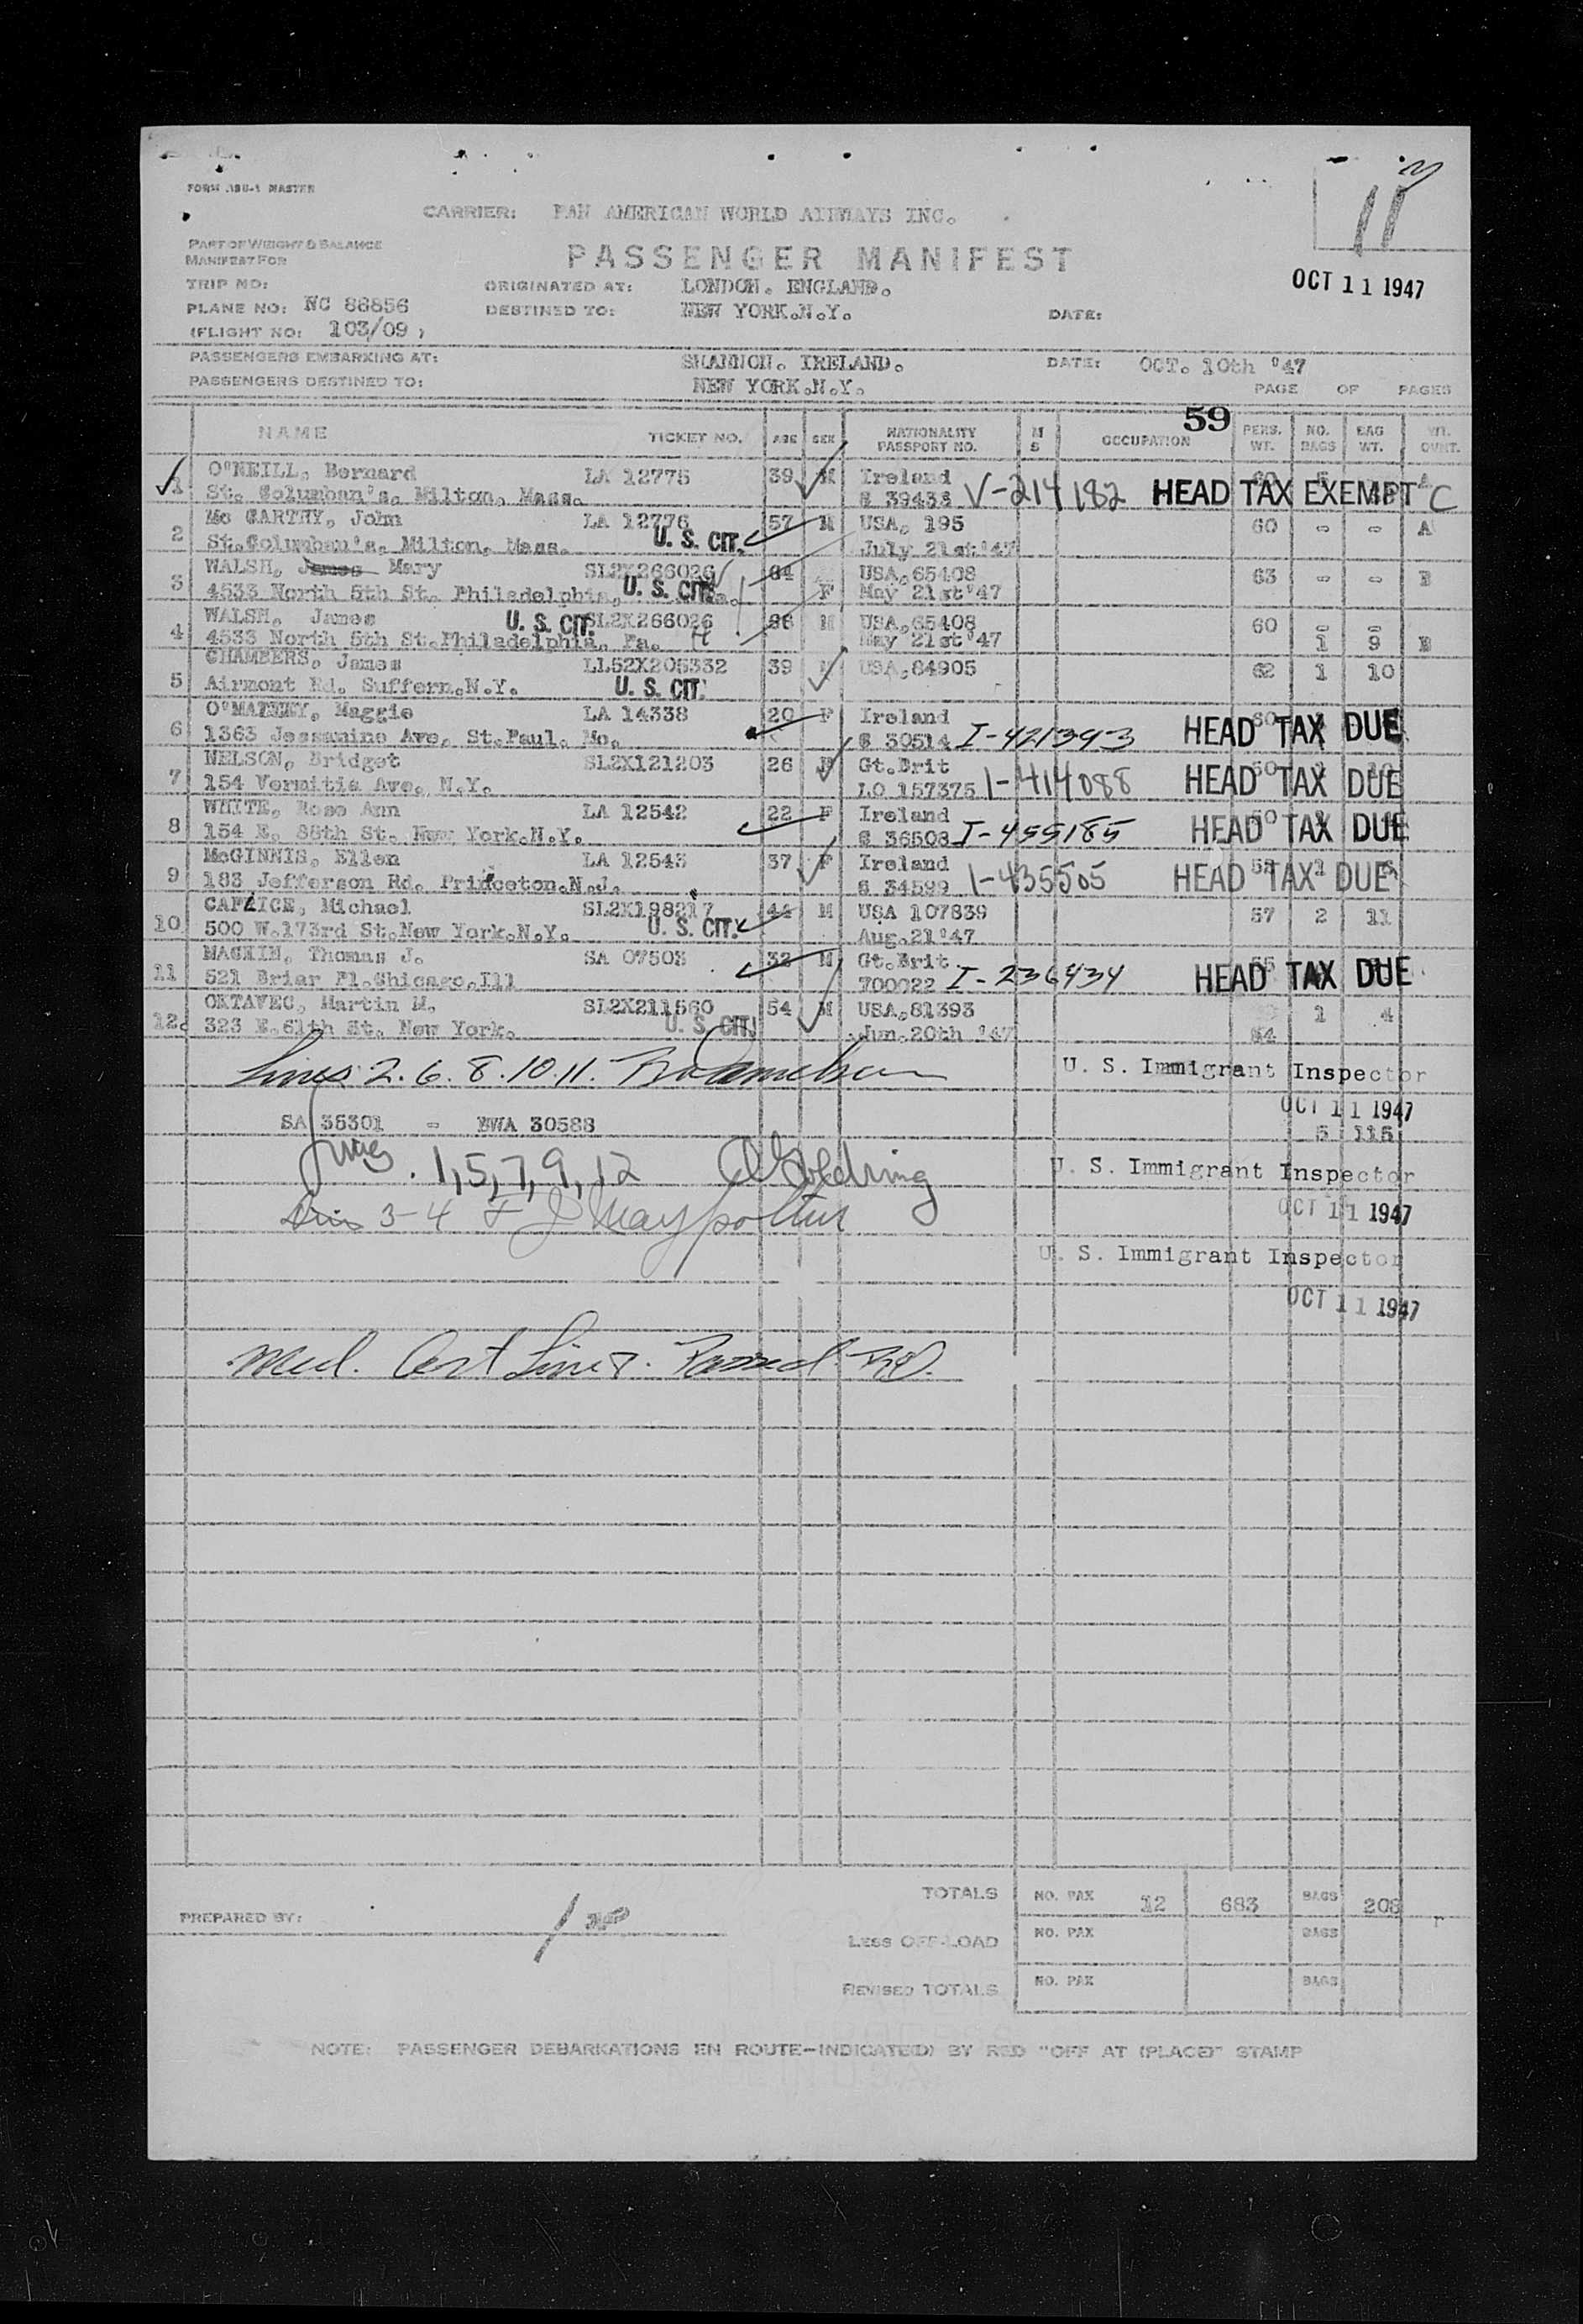 FORM
CARRIER: PAN AMERICAN WORLD AIRWAYS INC.
11
PART OF WEIGHT & BALANCE
MANIFEST FOR
PASSENGER MANIFEST
OCT 11 1947
TRIP NO: ORIGINATED AT: LONDON. ENGLAND.
PLANE NO: NC 88856 DESTINED TO: NEW YORK.N.Y. DATE:
(FLIGHT NO: 103/09 )
PASSENGERS EMBARKING AT: SHANNON. IRELAND. DATE: OCT. 10th '47
PASSENGERS DESTINED TO: NEW YORK.N.Y. PAGE OF PAGES
59
NAME TICKET NO. AGE SEX NATIONALITY PASSPORT NO. M S OCCUPATION PERS. WT. NO. BAGS BAG WT.
1 O'NEILL, Bernard LA 12775 39 M Ireland
St. Columban's, Milton, Mass. V-214182 HEAD TAX EXEMPT C
2 Mc CARTHY, John LA 12776 57 M USA, 195 60 - - A
St.Columban's, Milton, Mass. U. S. CIT. July 21st'47
3 WALSH, James Mary SL2X266026 64 USA,65408 63 - - B
4533 North 5th St. Philadelphia, U. S. CIT. F May 21st'47
4 WALSH, James U. S. CIT. SL2X266026 M USA,65408 60 - -
4533 North 5th St.Philadelphia, Pa. May 21st'47 1 9 B
5 CHAMBERS, James LL52X205332 39 USA,84905 62 1 10
Airmont Rd. Suffern.N.Y. U. S. CIT.
6 Maggie LA 14338 20 F Ireland
1363 Jessamine Ave. St.Paul. Mo. 30514 I-421393 HEAD TAX DUE
7 NELSON, Bridget SL2X121203 26 F Gt.Brit
154 Ave. N.Y. LO 157375 I-414088 HEAD TAX DUE
8 WHITE, Rose Ann LA 12542 22 F Ireland
154 E. 88th St. New York.N.Y. 36508 I-455185 HEAD TAX DUE
9 McGINNIS, Ellen LA 12543 37 F Ireland
183 Jefferson Rd. Princeton.N.J. 34599 I-435505 HEAD TAX DUE
10 Michael SL2X198217 44 M USA 107839 57 2 11
500 W.173rd St.New York.N.Y. U. S. CIT. Aug.21'47
11 Thomas J. SA 07503 32 M Gt.Brit
521 Briar Pl.Chicago.Ill 700022 I-236434 HEAD TAX DUE
12. OKTAVEC, Martin M. SL2X211560 54 M USA,81393 1 4
323 E.61th St. New York. U. S. CIT. Jun.20th '47
Lines 2. 6. 8. 10. 11. U. S. Immigrant Inspector
OCT 11 1947
SA 35301 - 30588 5 115
Lines. 1, 5, 7, 9, 12 Goldring U. S. Immigrant Inspector
3-4 OCT 11 1947
U. S. Immigrant Inspector
OCT 11 1947
Med. Cert Line Passed
TOTALS NO. PAX 12 683 BAGS 208
PREPARED BY:
LESS OFF-LOAD NO. PAX BAGS
REVISED TOTALS NO. PAX BAGS
NOTE: PASSENGER DEBARKATIONS EN ROUTE-INDICATE(D) BY RED "OFF AT (PLACE)" STAMP